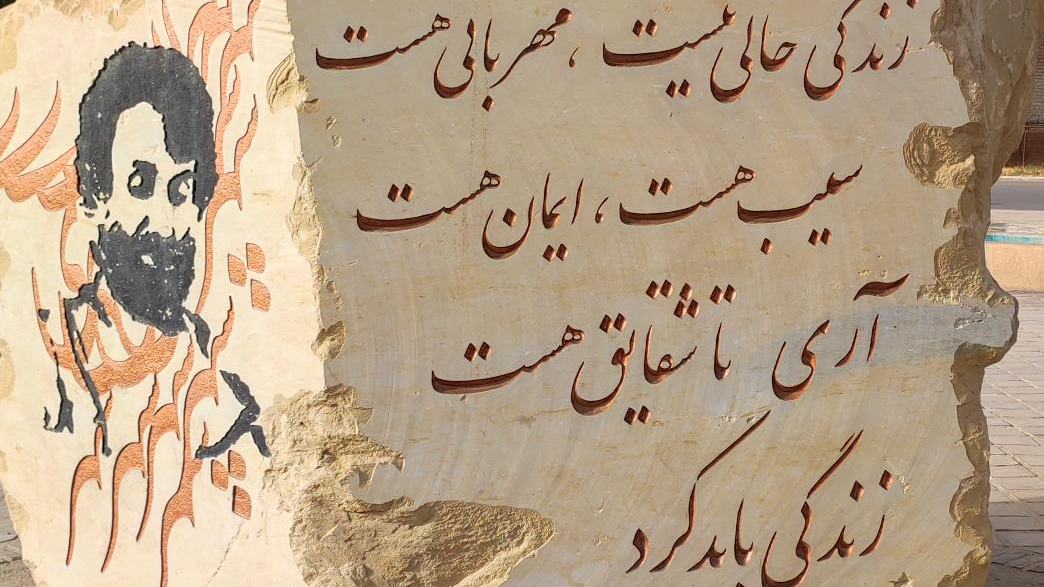 زندگی خالی نیست ، مهربانی هست
سیب هست ، ایمان هست
آری تا شقایق هست
زندگی باید کرد